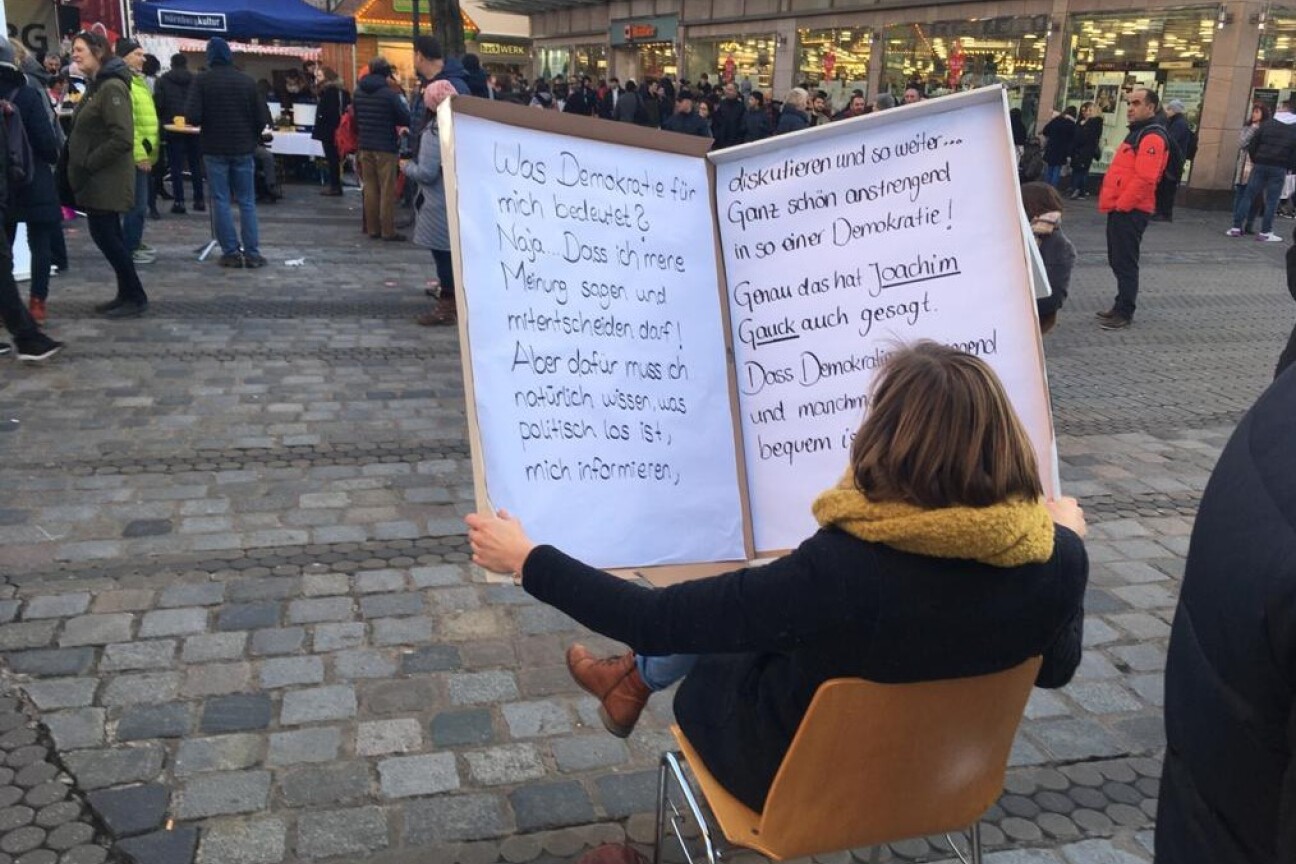 nürnbergkultur
RG
Müller
WERK
Was Demokratie für
mich bedeutet?
Naja... Dass ich meine
Meinung sagen und
mitentscheiden darf!
Aber dafür muss ich
natürlich wissen, was
politisch los ist,
mich informieren,
diskutieren und so weiter...
Ganz schön anstrengend
in so einer Demokratie!
Genau das hat Joachim
Gauck auch gesagt.
Dass Demokratie
und manchm
bequem is